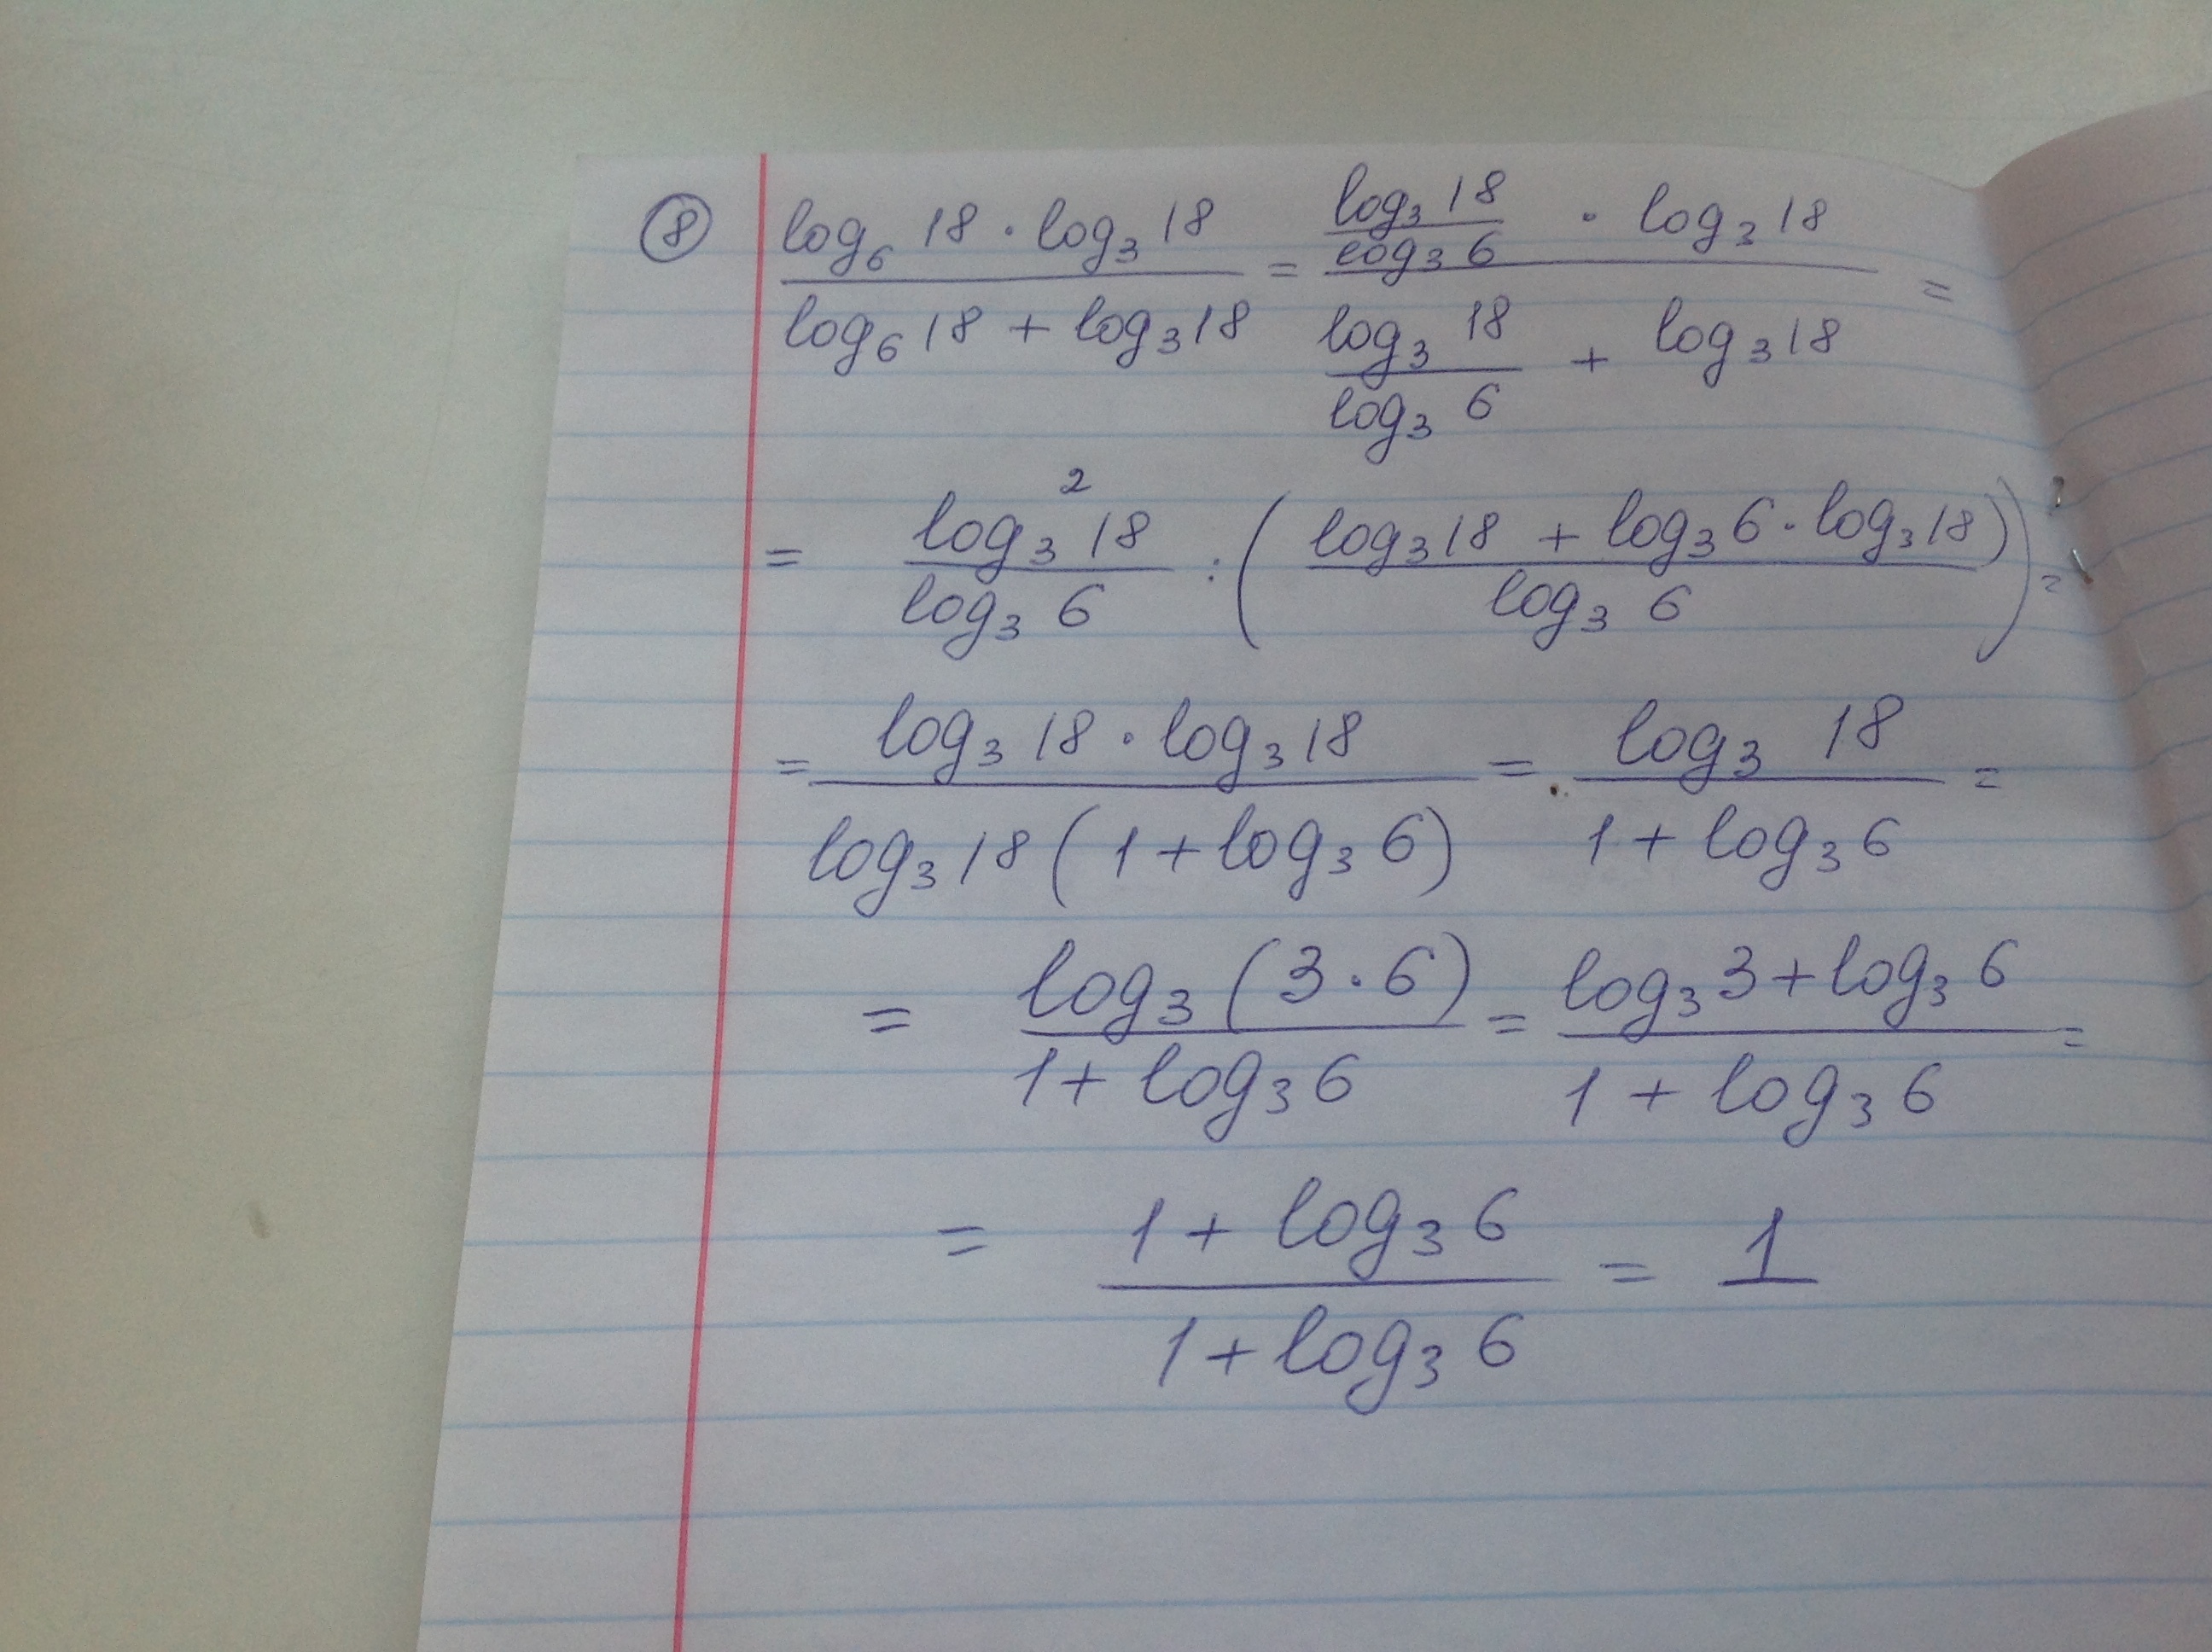 ⑧ (log₆ 18 · log₃ 18)/(log₆ 18 + log₃ 18) = ((log₃ 18)/(log₃ 6) · log₃ 18)/((log₃ 18)/(log₃ 6) + log₃ 18) =
= (log₃² 18)/(log₃ 6) : ((log₃ 18 + log₃ 6 · log₃ 18)/(log₃ 6)) =
= (log₃ 18 · log₃ 18)/(log₃ 18 (1 + log₃ 6)) = (log₃ 18)/(1 + log₃ 6) =
= (log₃ (3 · 6))/(1 + log₃ 6) = (log₃ 3 + log₃ 6)/(1 + log₃ 6) =
= (1 + log₃ 6)/(1 + log₃ 6) = 1